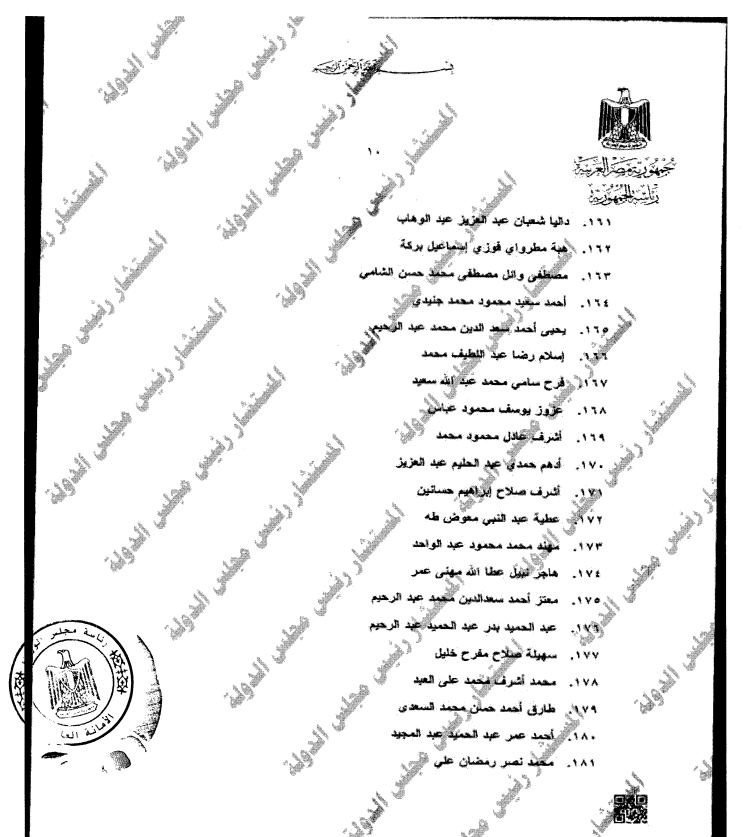 بسم الله الرحمن الرحيم
جمهورية مصر العربية
رئاسة الجمهورية
١٠
١٦١. داليا شعبان عبد العزيز عبد الوهاب
١٦٢. هبة مطرواي فوزي إسماعيل بركة
١٦٣. مصطفى وائل مصطفى محمد حسن الشامي
١٦٤. أحمد سعيد محمود محمد جنيدي
١٦٥. يحيى أحمد سعد الدين محمد عبد الرحيم
١٦٦. إسلام رضا عبد اللطيف محمد
١٦٧. فرح سامي محمد عبد الله سعيد
١٦٨. عزوز يوسف محمود عباس
١٦٩. أشرف عادل محمود محمد
١٧٠. أدهم حمدي عبد الحليم عبد العزيز
١٧١. أشرف صلاح إبراهيم حسانين
١٧٢. عطية عبد النبي معوض طه
١٧٣. مهند محمد محمود عبد الواحد
١٧٤. هاجر نبيل عطا الله مهنى عمر
١٧٥. معتز أحمد سعدالدين محمد عبد الرحيم
١٧٦. عبد الحميد بدر عبد الحميد عبد الرحيم
١٧٧. سهيلة صلاح مفرح خليل
١٧٨. محمد أشرف محمد على العبد
١٧٩. طارق أحمد حسن محمد السعدى
١٨٠. أحمد عمر عبد الحميد عبد المجيد
١٨١. محمد نصر رمضان علي
رئاسة مجلس
الأمانة العا
المستشار رئيس مجلس الدولة